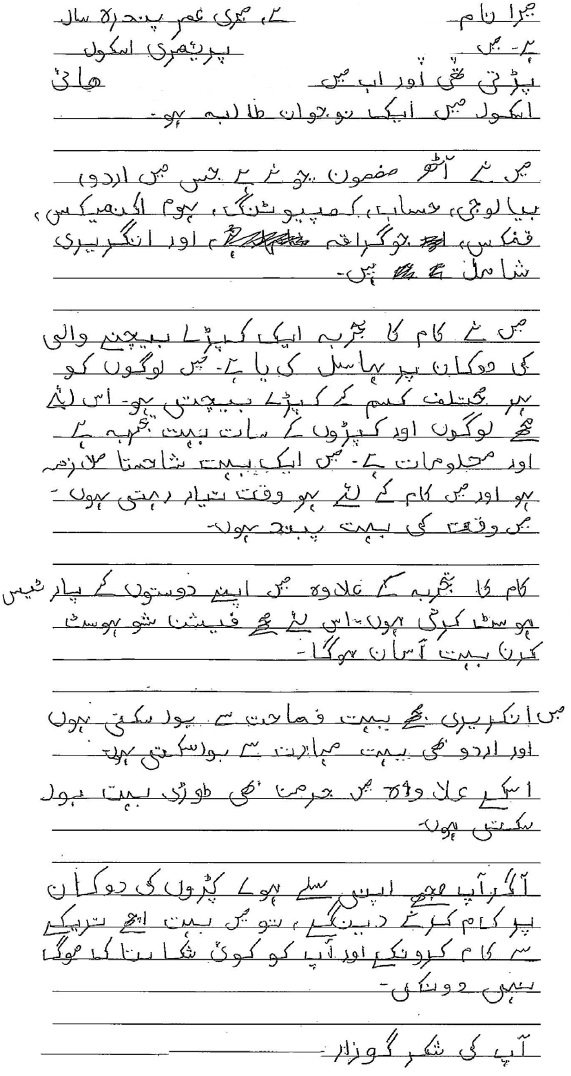 میرا نام ہے، میری عمر پندرہ سال
ہے۔ میں پریٹھری اسکول
پڑتی تھی اور اب میں ھائ
اسکول میں ایک نوجوان طالبہ ہو۔
میں نے آٹھ مضمون چونے ہے جس میں اردو،
بیالوجی، حساب، کمپیوٹنگ، ہوم اکنمیکس،
فیزکس، جوگرافہ اور انگریری
شامل ہیں۔
میں نے کام کا تجربہ ایک کپڑے بیچنے والی
کی دوکان پر ہاسل کی یا ہے۔ میں لوگوں کو
ہر مختلف کسم کے کپڑے بیچتی ہو۔ اس لئے
مجھے لوگوں اور کپڑوں کے سات بہت تجربہ ہے
اور محلومات ہے۔ میں ایک بہت شاحستا ملازمہ
ہو اور میں کام کے لئے ہر وقت تیار رہتی ہوں۔
میں وقت کی بہت پبند ہوں۔
کام کا تجربہ کے علاوہ میں اپنے دوستوں کے پارٹیس
ہوسٹ کرتی ہوں۔ اس لئے مجھے فیشن شو ہوسٹ
کرن بہت آسان ہوگا۔
میں انگریری بہت فصاحت سے بول سکتی ہوں
اور اردو بھی بہت مہارت سے بول سکتی ہوں۔
اسکے علاوہ میں جرمن بھی طوڑی بہت بول
سکتی ہوں۔
آگر آپ مجھے اپنی سلے ہوئے کپڑوں کی دوکان
پر کام کرنے دینگے، تو میں بہت اچھے تریکے
سے کام کرونگی اور آپ کو کوئ شکایتا کی موگ
نہیی دونگی۔
آپ کی شکر گوزار۔